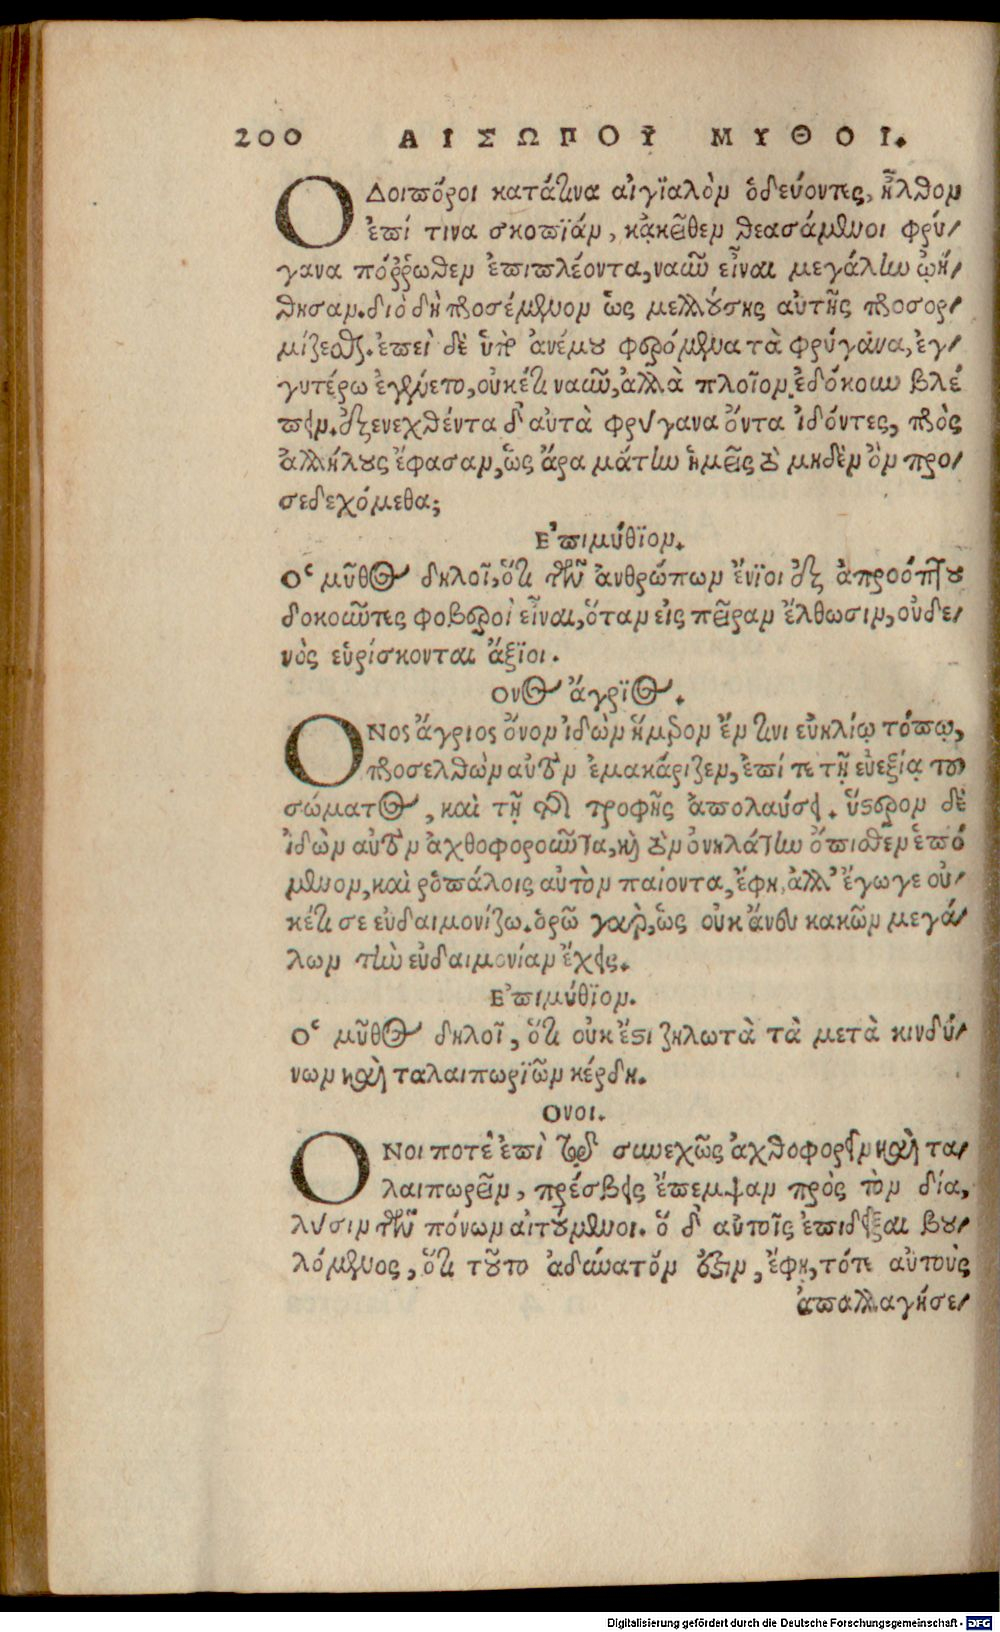 200 ΑΙΣΩΠΟΥ ΜΥΘΟΙ.
ΟΔοιπόροι κατάτινα αἰγϊαλὸν ὁδεύοντες, ἦλθον
ἐπί τινα σκοπϊάν, κᾀκεῖθεν θεασάμενοι φρύ-
γανα πόῤῥωθεν ἐπιπλέοντα, ναῦν εἶναι μεγάλην ᾠή-
θησαν. διὸ δὴ προσέμενον ὡς μελλούσης αὐτῆς προσορ-
μίζεσθαι. ἐπεὶ δὲ ὑπὸ ἀνέμου φερόμενα τὰ φρύγανα, ἐγ-
γυτέρω ἐγένετο, οὐκέτι ναῦν, ἀλλὰ πλοῖον ἐδόκουν βλέ
πειν. ἐξενεχθέντα δ' αὐτὰ φρύγανα ὄντα ἰδόντες, πρὸς
ἀλλήλους ἔφασαν, ὡς ἄρα μάτην ἡμεῖς τὸ μηδὲν ὂν προ-
σεδεχόμεθα;
Ἐπιμύθϊον.
Ὁ μῦθος δηλοῖ, ὅτι τῶν ἀνθρώπων ἔνϊοι ἐξ ἀπροόπτου
δοκοῦντες φοβεροὶ εἶναι, ὅταν εἰς πεῖραν ἔλθωσιν, οὐδε-
νὸς εὑρίσκονται ἄξϊοι.
Ονος ἄγρϊος.
ΟΝος ἄγριος ὄνον ἰδὼν ἥμερον ἔν τινι εὐηλίῳ τόπῳ,
προσελθὼν αὐτὸν ἐμακάριζεν, ἐπί τε τῇ εὐεξίᾳ τοῦ
σώματος, καὶ τῇ τῆς τροφῆς ἀπολαύσει. ὕστερον δὲ
ἰδὼν αὐτὸν ἀχθοφοροῦντα, καὶ τὸν ὀνηλάτην ὄπισθεν ἑπό
μενον, καὶ ῥοπάλοις αὐτὸν παίοντα, ἔφη, ἀλλ' ἔγωγε οὐ-
κέτι σε εὐδαιμονίζω. ὁρῶ γὰρ, ὡς οὐκ ἄνευ κακῶν μεγά-
λων τὴν εὐδαιμονίαν ἔχεις.
Ἐπιμύθϊον.
Ὁ μῦθος δηλοῖ, ὅτι οὐκ ἔστι ζηλωτὰ τὰ μετὰ κινδύ-
νων καὶ ταλαιπωρϊῶν κέρδη.
Ονοι.
ΟΝοι ποτὲ ἐπὶ τῷ συνεχῶς ἀχθοφορεῖν καὶ τα-
λαιπωρεῖν, πρέσβεις ἔπεμψαν πρὸς τὸν δία,
λύσιν τῶν πόνων αἰτούμενοι. ὁ δὲ αὐτοῖς ἐπιδεῖξαι βου-
λόμενος, ὅτι τοῦτο ἀδύνατόν ἐστιν, ἔφη, τότε αὐτοὺς
ἀπαλλαγήσε-
Digitalisierung gefördert durch die Deutsche Forschungsgemeinschaft - DFG